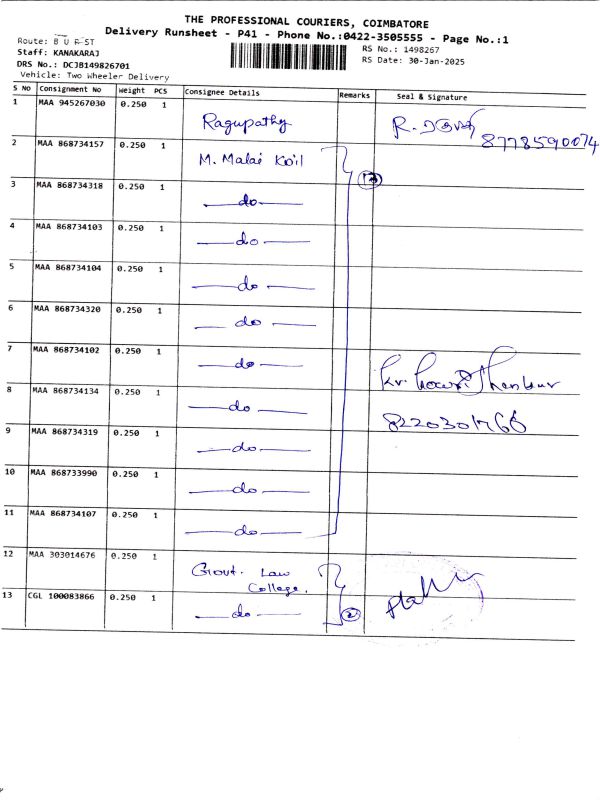 THE PROFESSIONAL COURIERS, COIMBATORE
Delivery Runsheet - P41 - Phone No.:0422-3505555 - Page No.:1
Route: B U R ST
Staff: KANAKARAJ
DRS No.: DCJB149826701
Vehicle: Two Wheeler Delivery
RS No.: 1498267
RS Date: 30-Jan-2025
S No Consignment No Weight PCS Consignee Details Remarks Seal & Signature
1 MAA 945267030 0.250 1 Ragupathy R. ரகுபதி 8778590074
2 MAA 868734157 0.250 1 M. Malai Koil
3 MAA 868734318 0.250 1 —do—
4 MAA 868734103 0.250 1 —do—
5 MAA 868734104 0.250 1 —do—
6 MAA 868734320 0.250 1 —do—
7 MAA 868734102 0.250 1 —do—
8 MAA 868734134 0.250 1 —do—
9 MAA 868734319 0.250 1 —do—
10 MAA 868733990 0.250 1 —do—
11 MAA 868734107 0.250 1 —do—
12 MAA 303014676 0.250 1 Govt. Law College.
13 CGL 100083866 0.250 1 —do— 2